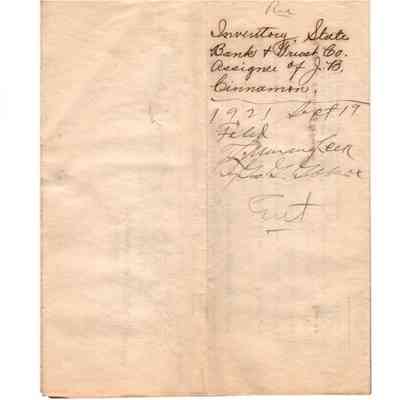 Rec
Inventory, State
Bank & Trust Co.
Assignee of J.B.
Cinnamon.
1921 Sept 19
Filed
Ent